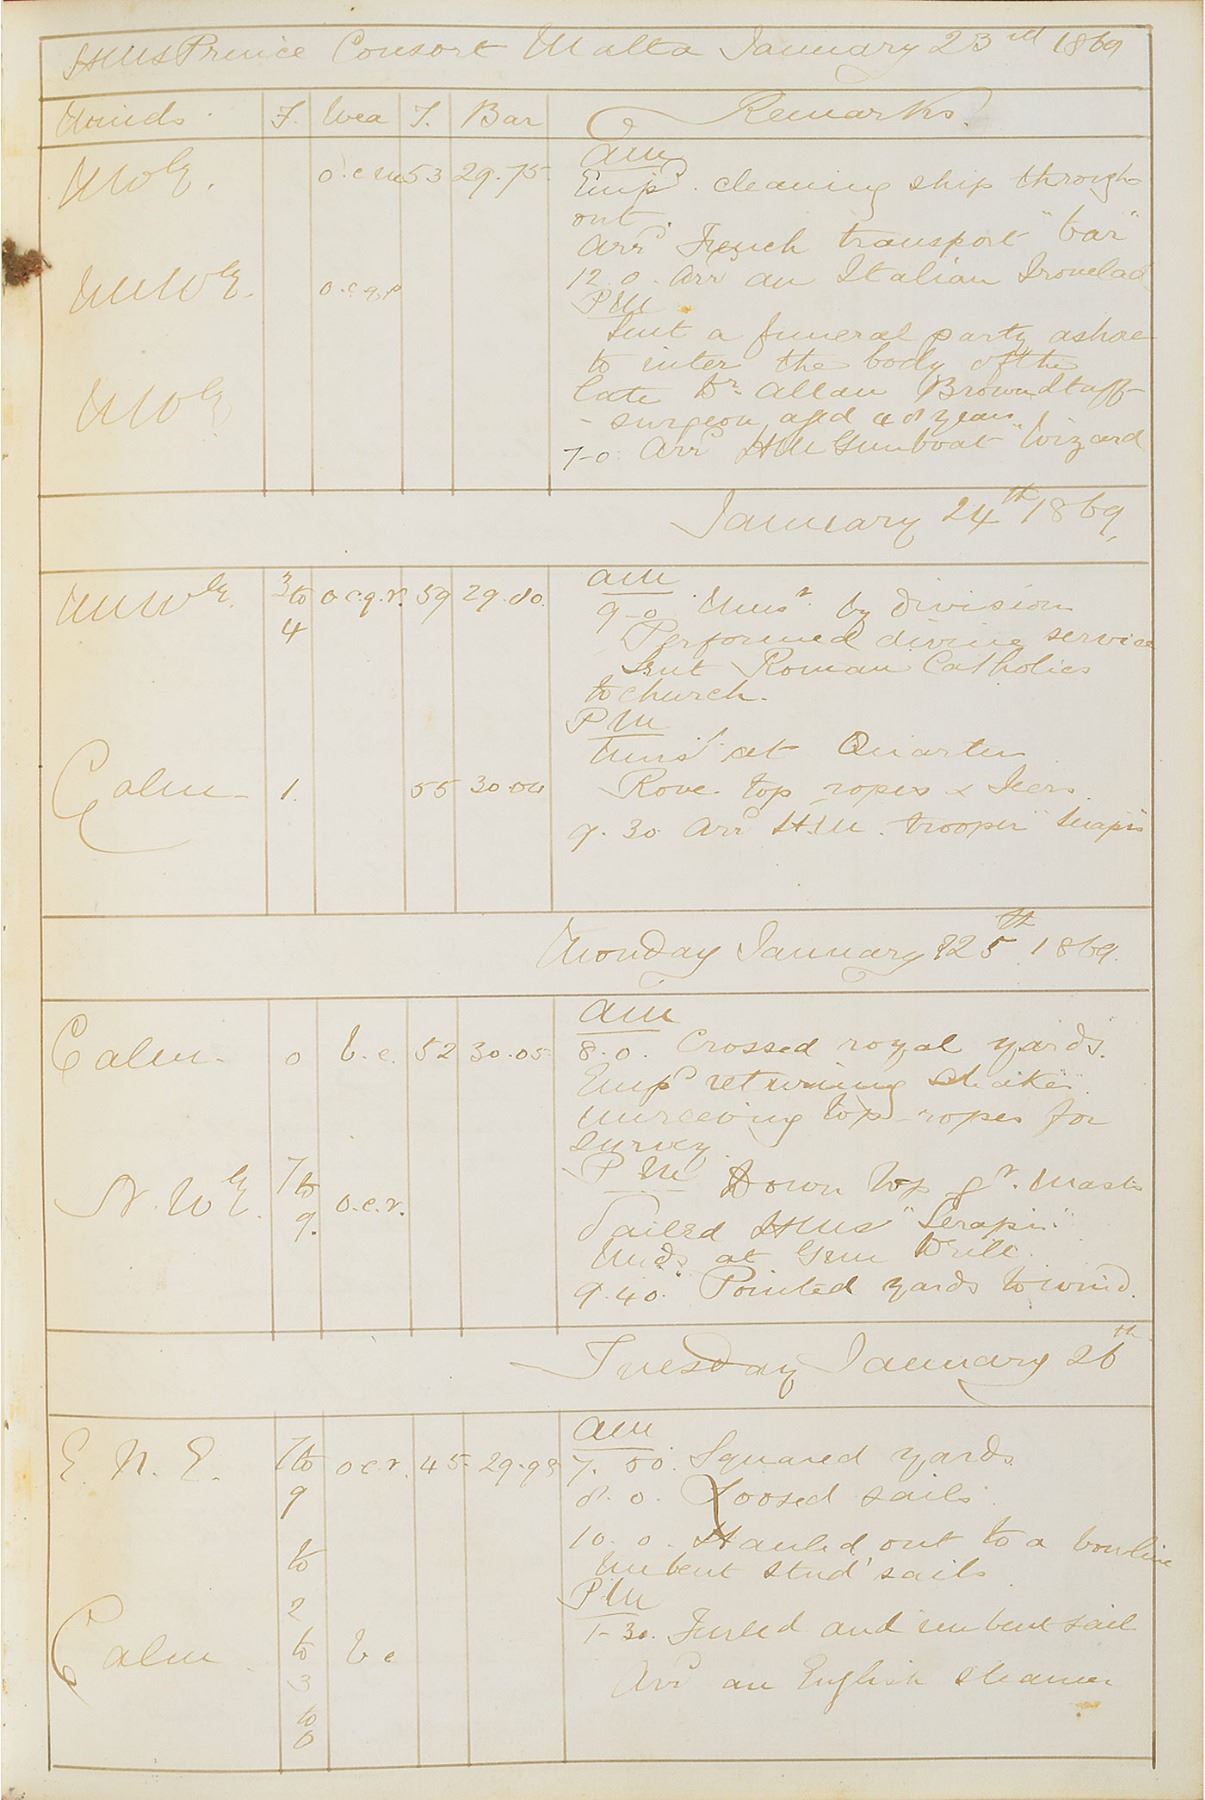 HMS Prince Consort Malta January 23rd 1869
Winds F. Wea T. Bar Remarks
am
NWly. o.c.m 53 29.75 Empd. cleaning ship through-
out
Arrd French transport "
12.0. Arr an Italian Ironclad
NNWly. o.c.q.p
PM
Sent a funeral party ashoe
to inter the body of the
NWly late Dr. Allan Brown Staff
- surgeon aged 48 years
7-0. Arrd HM Gunboat "Wizard
January 24th 1869,
am
NNWly. 3 to 4 o.c.q.r. 59 29.80. 9-0 Musr by division
Performed divine service
Sent Roman Catholics
to church.
PM
Musr at Quarters
Calm 1. 55 30.04 Rove top ropes & Jeers
9.30 Arrd H.M. trooper "Serapis
Monday January 25th 1869.
am
Calm 0 b.c. 52 30.05 8.0. Crossed royal yards.
Empd returning
unreeving top-ropes for
survey
N.Wly. 7 to 9. o.c.r. PM Down top gr. Masts
Sailed HMS "Serapis"
Mids at Gun Drill.
9.40. Pointed yards to wind.
Tuesday January 26th
am
E.N.E. 7 to 9 o.c.r. 45. 29.98 7.00. Squared yards
8.0. Loosed sails.
10.0. Hauled out to a bowline
to Unbent stud' sails
PM
2 1-30. Furled and unbent sail
Calm to 3 b c
Arrd an English steamer
to 0